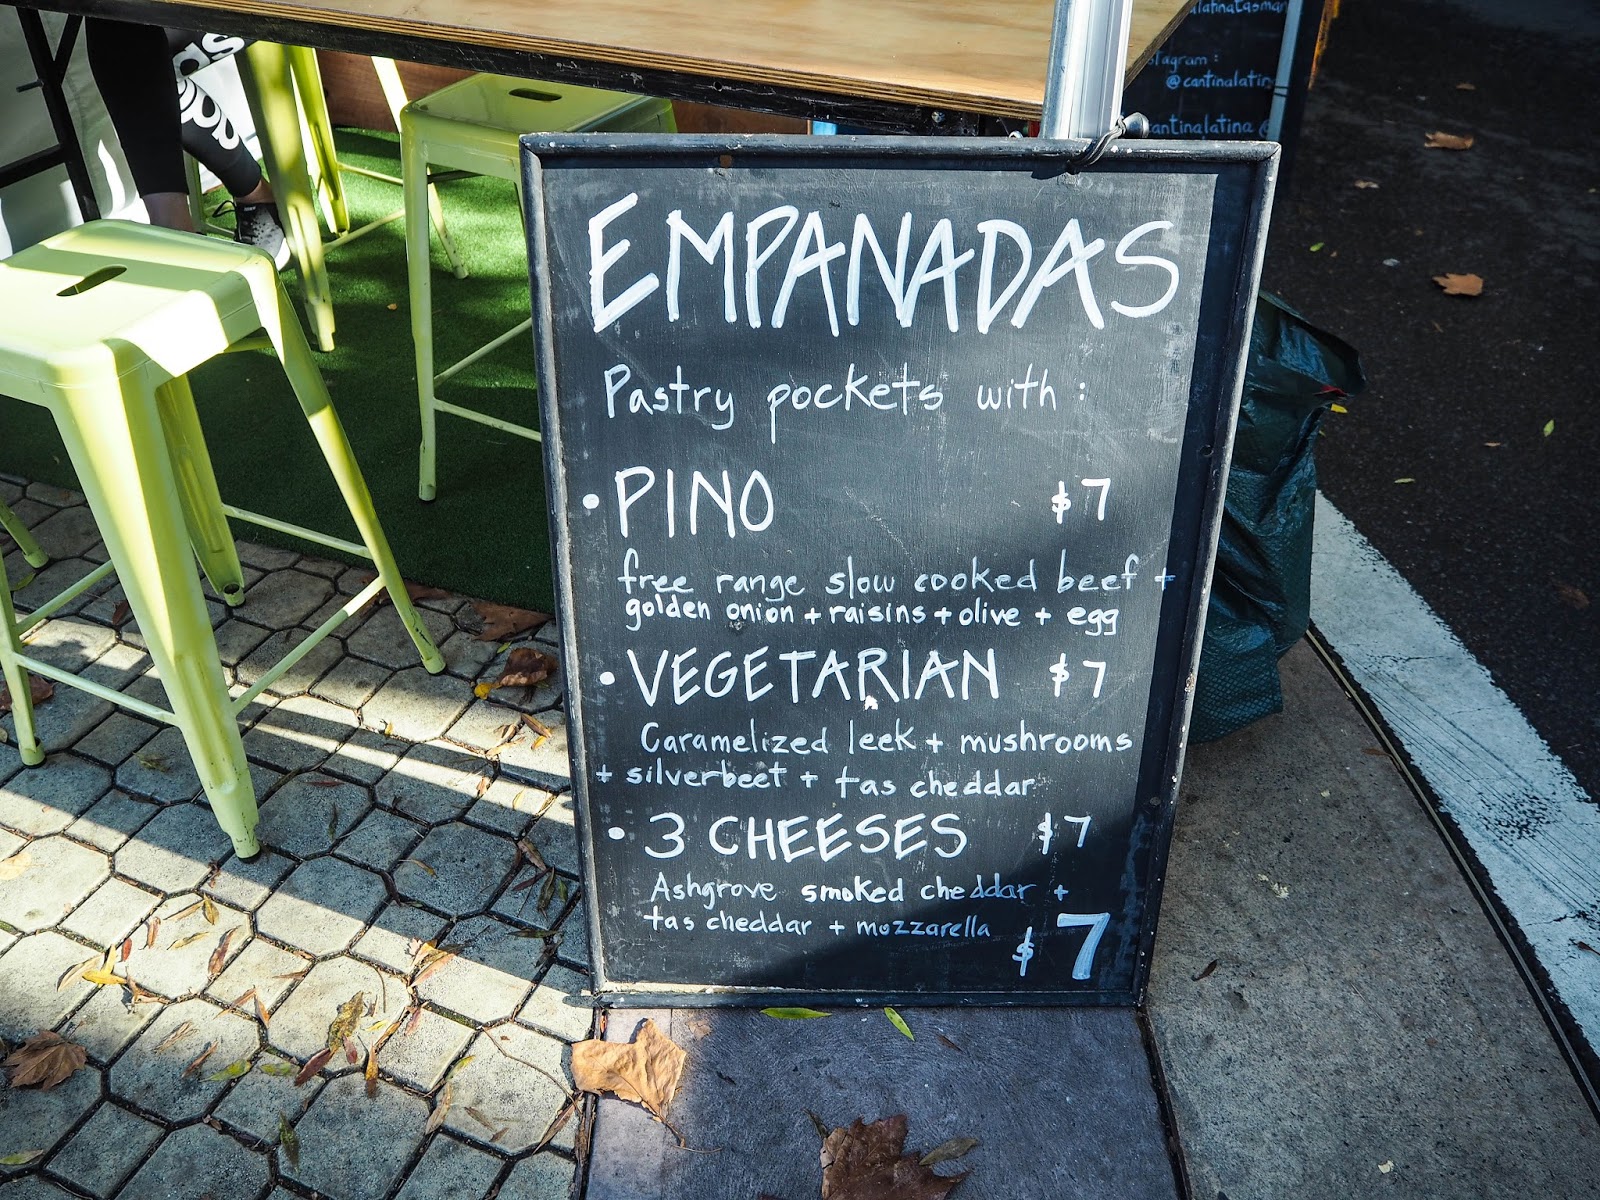 EMPANADAS
Pastry pockets with :
• PINO $7
free range slow cooked beef +
golden onion + raisins + olive + egg
• VEGETARIAN $7
Caramelized leek + mushrooms
+ silverbeet + tas cheddar
• 3 CHEESES $7
Ashgrove smoked cheddar +
tas cheddar + mozzarella
$7
@cantinalatin
cantinalatina @
adidas